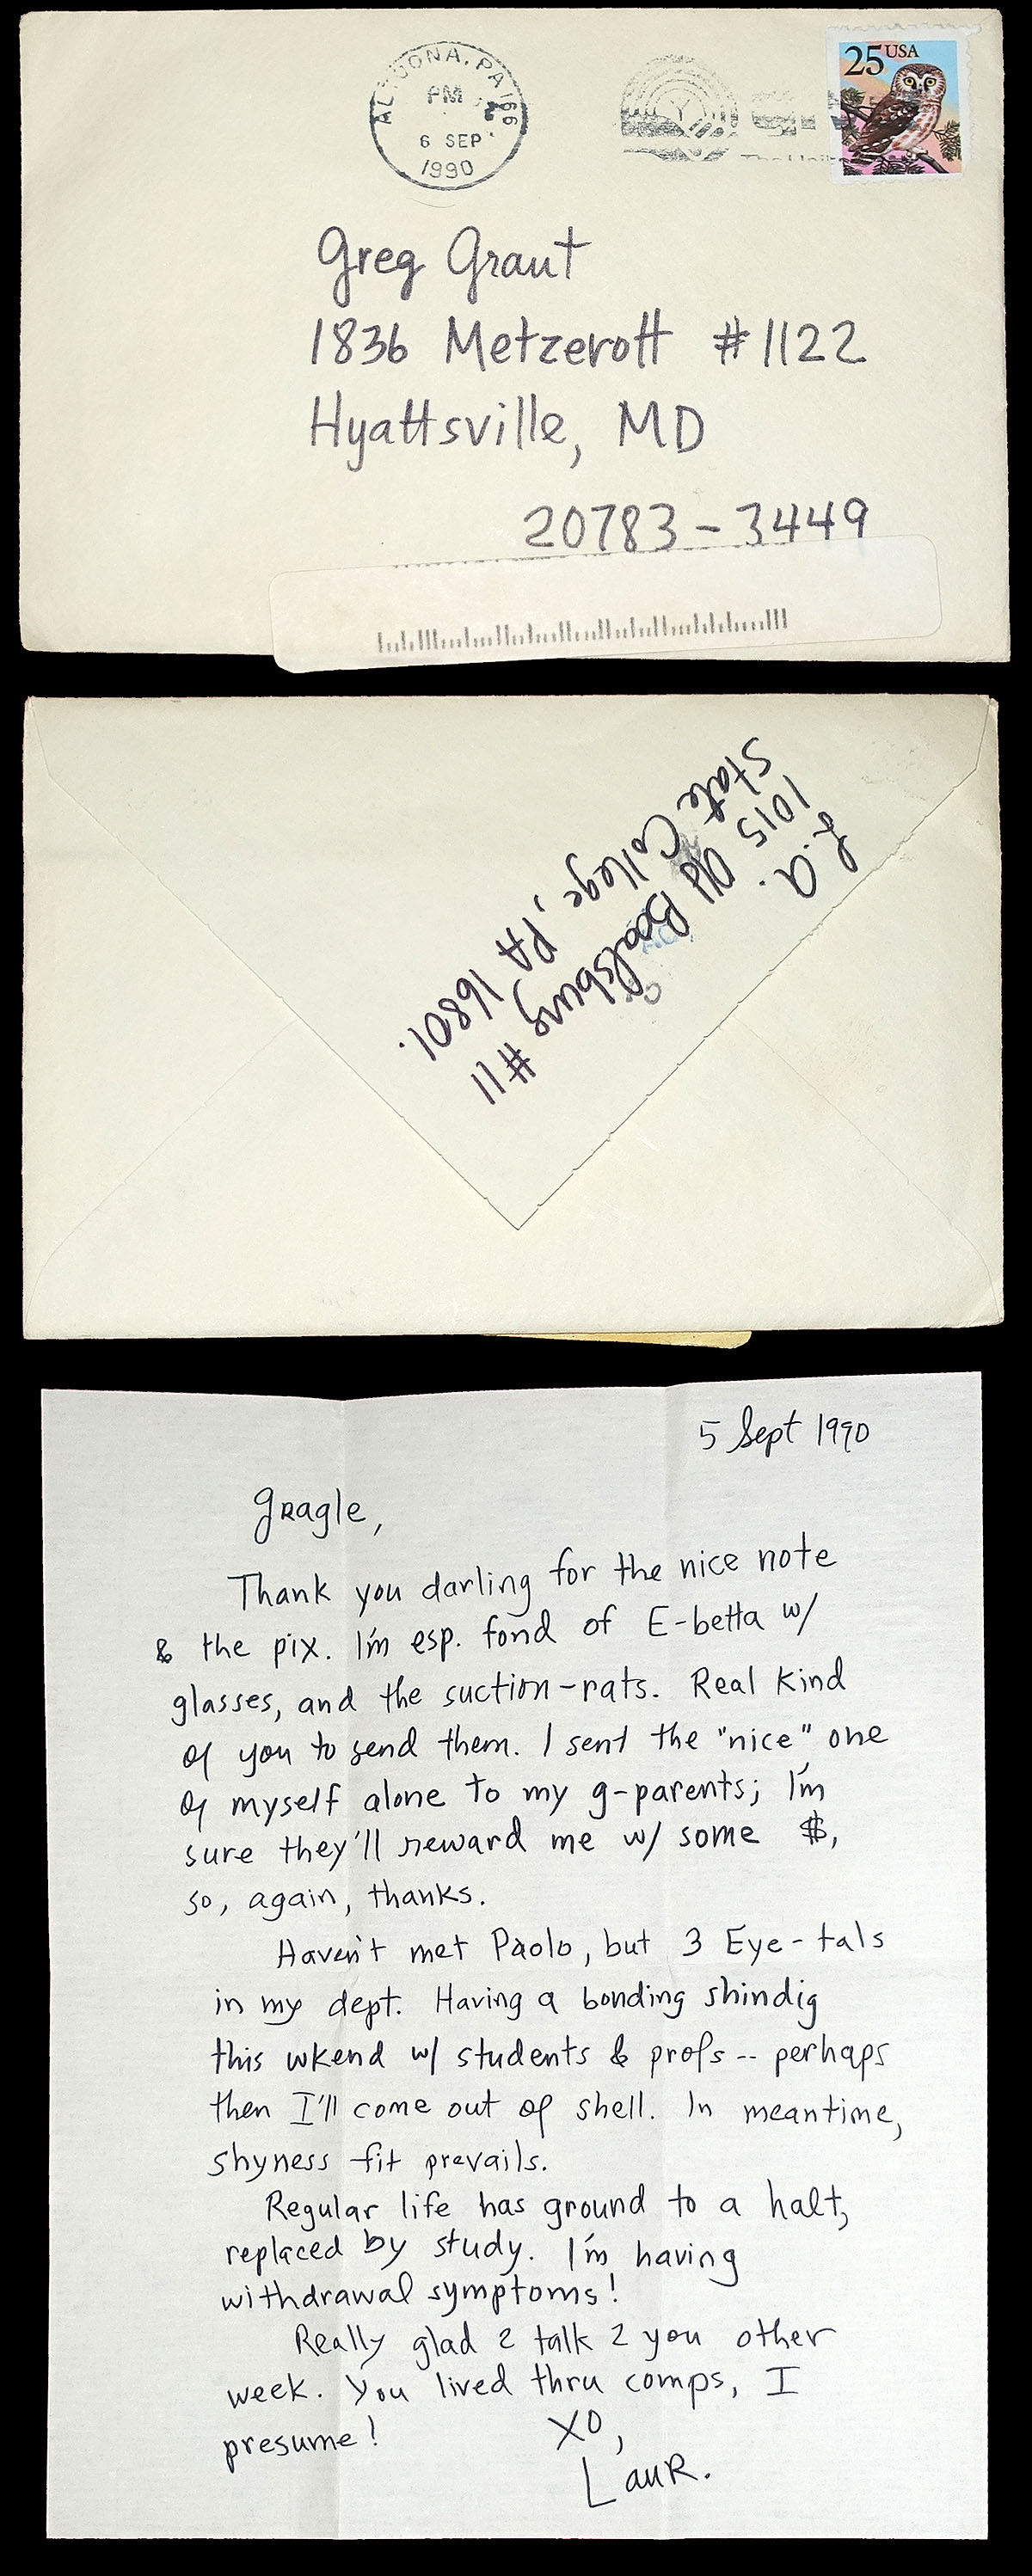 ALTOONA, PA 166
PM
6 SEP
1990
25 USA
Greg Grant
1836 Metzerott #1122
Hyattsville, MD
20783-3449
L.A.
1015 Old Boalsburg #11
State College, PA 16801.
5 Sept 1990
Gragle,
Thank you darling for the nice note
& the pix. I'm esp. fond of E-betta w/
glasses, and the suction-rats. Real kind
of you to send them. I sent the "nice" one
of myself alone to my g-parents; I'm
sure they'll reward me w/ some $,
so, again, thanks.
Haven't met Paolo, but 3 Eye-tals
in my dept. Having a bonding shindig
this wkend w/ students & profs -- perhaps
then I'll come out of shell. In meantime,
shyness fit prevails.
Regular life has ground to a halt,
replaced by study. I'm having
withdrawal symptoms!
Really glad 2 talk 2 you other
week. You lived thru comps, I
presume!
XO,
LauR.